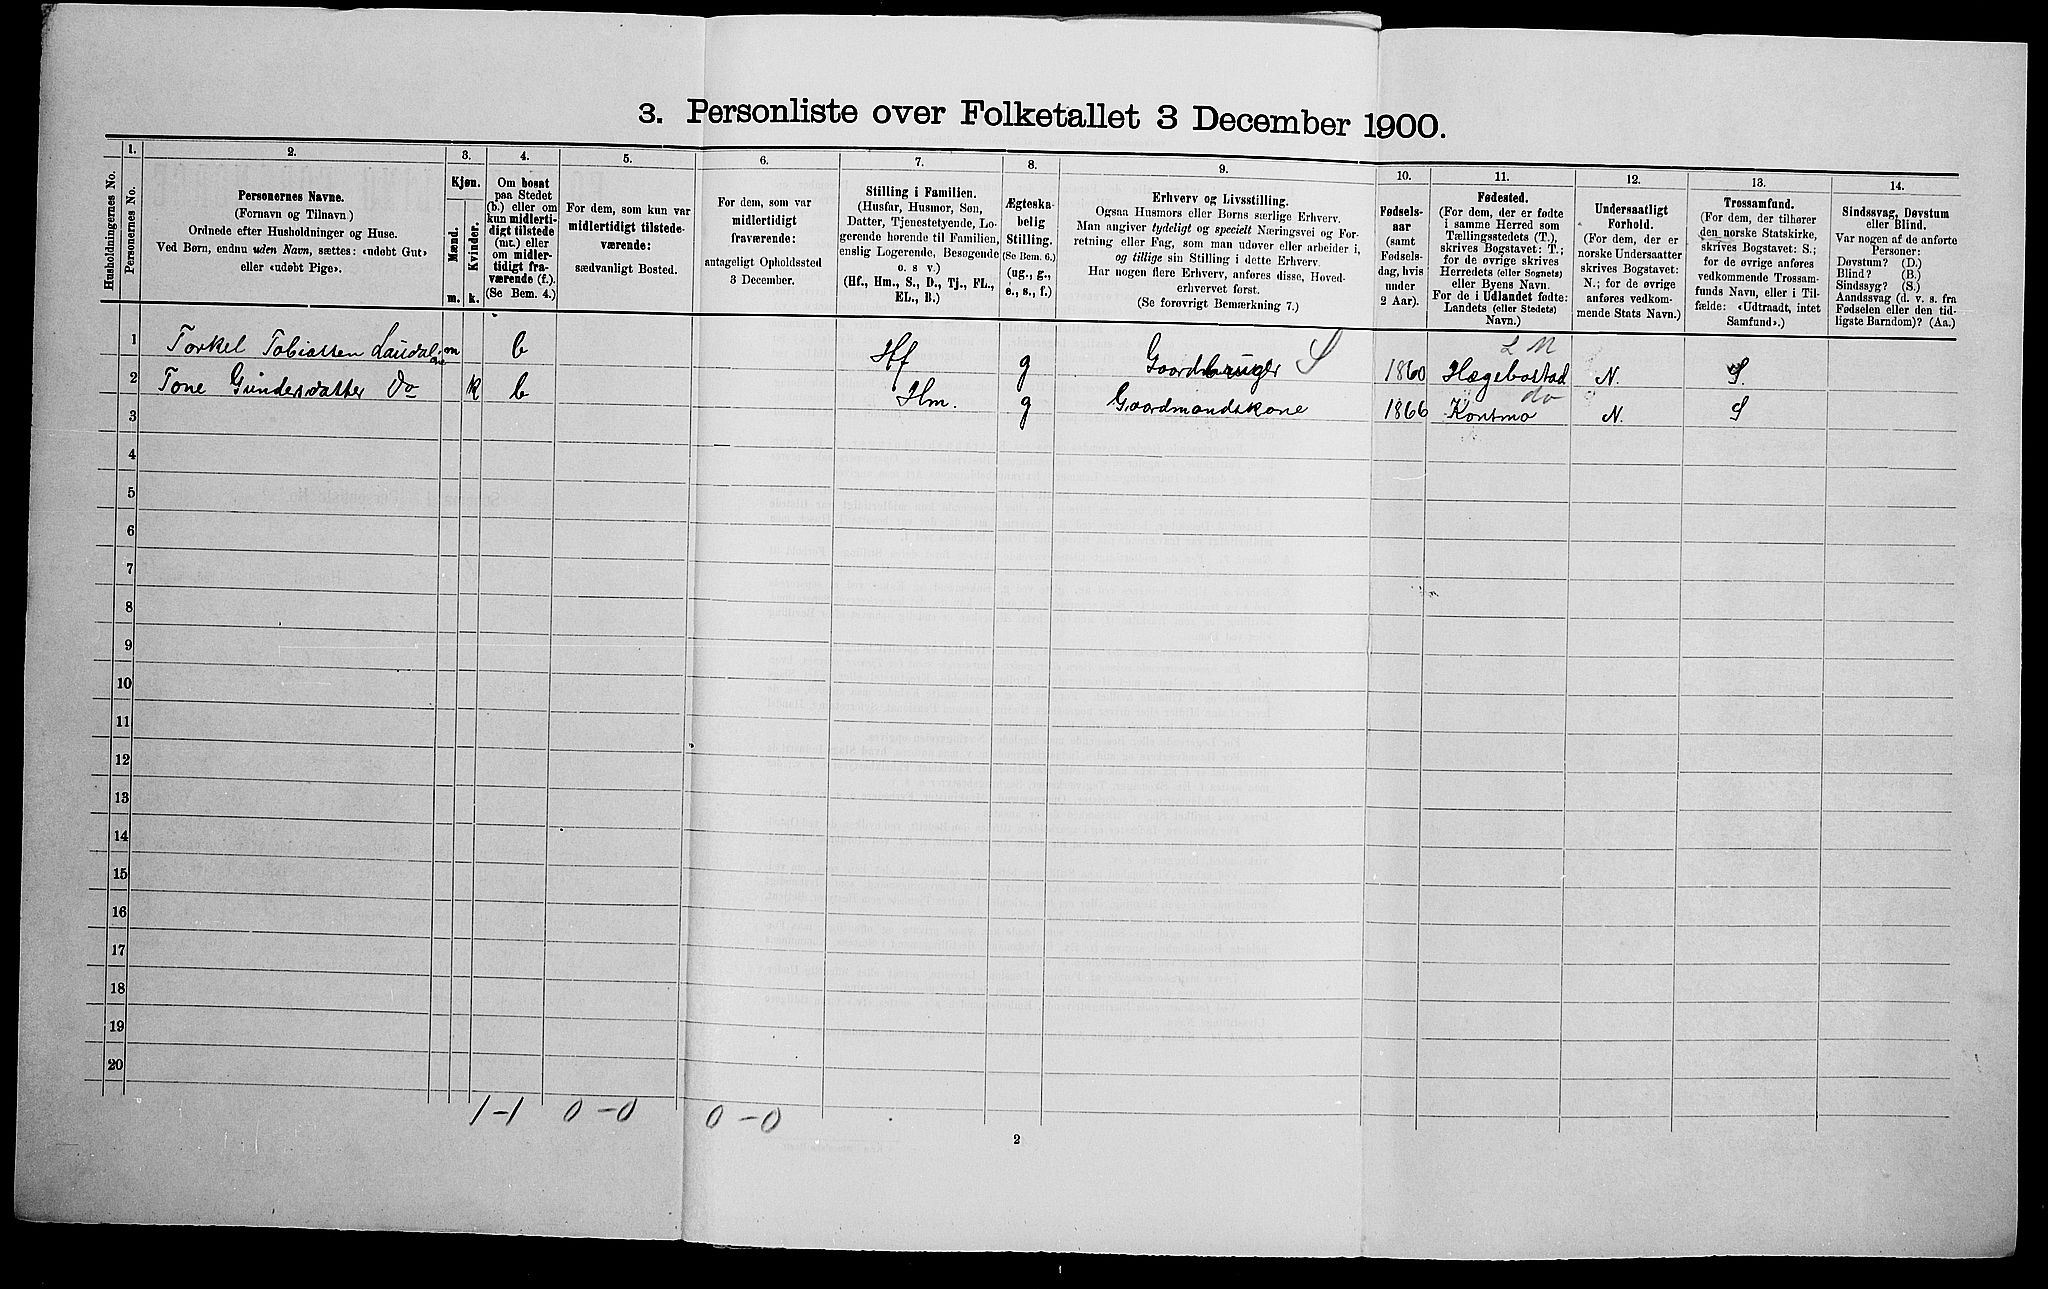 3. Personliste over Folketallet 3 December 1900.
Husholdningernes No.
1.
Personernes No.
2.
Personernes Navne.
(Fornavn og Tilnavn.)
Ordnede efter Husholdninger og Huse.
Ved Børn, endnu uden Navn, sættes: «udøbt Gut»
eller «udøbt Pige».
3.
Kjøn.
Mænd.
Kvinder.
m. k.
4.
Om bosat
paa Stedet
(b.) eller om
kun midlerti-
digt tilstede
(mt.) eller
om midler-
tidigt fra-
værende (f.).
(Se Bem. 4.)
5.
For dem, som kun var
midlertidigt tilstede-
værende:
sædvanligt Bosted.
6.
For dem, som var
midlertidigt
fraværende:
antageligt Opholdssted
3 December.
7.
Stilling i Familien.
(Husfar, Husmor, Søn,
Datter, Tjenestetyende, Lo-
gerende hørende til Familien,
enslig Logerende, Besøgende
o. s v.)
(Hf., Hm., S., D., Tj., FL.,
EL., B.)
8.
Ægteska-
belig
Stilling.
(Se Bem. 6.)
(ug., g.,
e., s., f.)
9.
Erhverv og Livsstilling.
Ogsaa Husmors eller Børns særlige Erhverv.
Man angiver tydeligt og specielt Næringsvei og For-
retning eller Fag, som man udøver eller arbeider i,
og tillige sin Stilling i dette Erhverv.
Har nogen flere Erhverv, anføres disse, Hoved-
erhvervet først.
(Se forøvrigt Bemærkning 7.)
10.
Fødsels-
aar
(samt
Fødsels-
dag, hvis
under
2 Aar).
11.
Fødested.
(For dem, der er fødte
i samme Herred som
Tællingsstedets (T.),
skrives Bogstavet: T.;
for de øvrige skrives
Herredets (eller Sognets)
eller Byens Navn.
For de i Udlandet fødte:
Landets (eller Stedets)
Navn.)
12.
Undersaatligt
Forhold.
(For dem, der er
norske Undersaatter
skrives Bogstavet:
N.; for de øvrige
anføres vedkom-
mende Stats Navn.)
13.
Trossamfund.
(For dem, der tilhører
den norske Statskirke,
skrives Bogstavet: S.;
for de øvrige anføres
vedkommende Trossam-
funds Navn, eller i Til-
fælde: «Udtraadt, intet
Samfund».)
14.
Sindssvag, Døvstum
eller Blind.
Var nogen af de anførte
Personer:
Døvstum? (D.)
Blind? (B.)
Sindssyg? (S.)
Aandssvag (d. v. s. fra
Fødselen eller den tid-
ligste Barndom)? (Aa.)
L M
1 Torkel Tobiassen Laudal m b Hf g Gaardbruger S 1860 Hægebostad N. S.
do
2 Tone Gundersdatter Do k b Hm. g Gaardmandskone 1866 Konsmo N. S
3
4
5
6
7
8
9
10
11
12
13
14
15
16
17
18
19
20
1-1 0-0 0-0
2